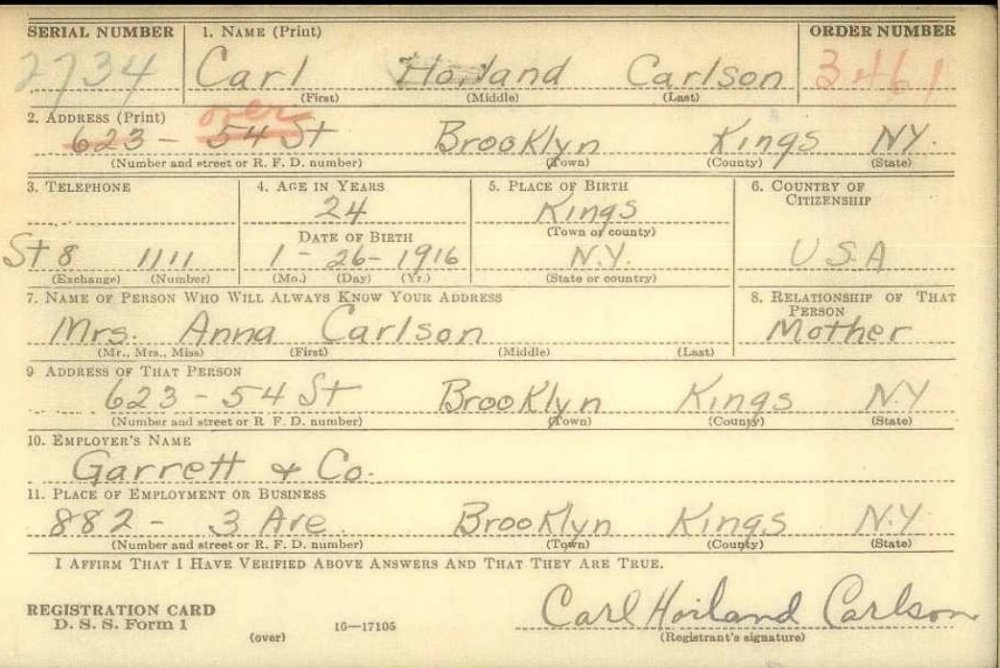 SERIAL NUMBER 1. NAME (Print) ORDER NUMBER
2734 Carl Hoiland Carlson 3461
(First) (Middle) (Last)
over
2. ADDRESS (Print)
623 - 54 St Brooklyn Kings NY.
(Number and street or R. F. D. number) (Town) (County) (State)
3. TELEPHONE 4. AGE IN YEARS 5. PLACE OF BIRTH 6. COUNTRY OF CITIZENSHIP
24 Kings
DATE OF BIRTH (Town or county)
St 8 1111 1 - 26 - 1916 N.Y. USA
(Exchange) (Number) (Mo.) (Day) (Yr.) (State or country)
7. NAME OF PERSON WHO WILL ALWAYS KNOW YOUR ADDRESS 8. RELATIONSHIP OF THAT PERSON
Mrs. Anna Carlson Mother
(Mr., Mrs., Miss) (First) (Middle) (Last)
9 ADDRESS OF THAT PERSON
623 - 54 St Brooklyn Kings N.Y
(Number and street or R F. D. number) (Town) (County) (State)
10. EMPLOYER'S NAME
Garrett & Co.
11. PLACE OF EMPLOYMENT OR BUSINESS
882 - 3 Ave. Brooklyn Kings N.Y.
(Number and street or R. F. D. number) (Town) (County) (State)
I AFFIRM THAT I HAVE VERIFIED ABOVE ANSWERS AND THAT THEY ARE TRUE.
Carl Hoiland Carlson
REGISTRATION CARD
D. S. S. Form 1 (over) 16—17105 (Registrant's signature)